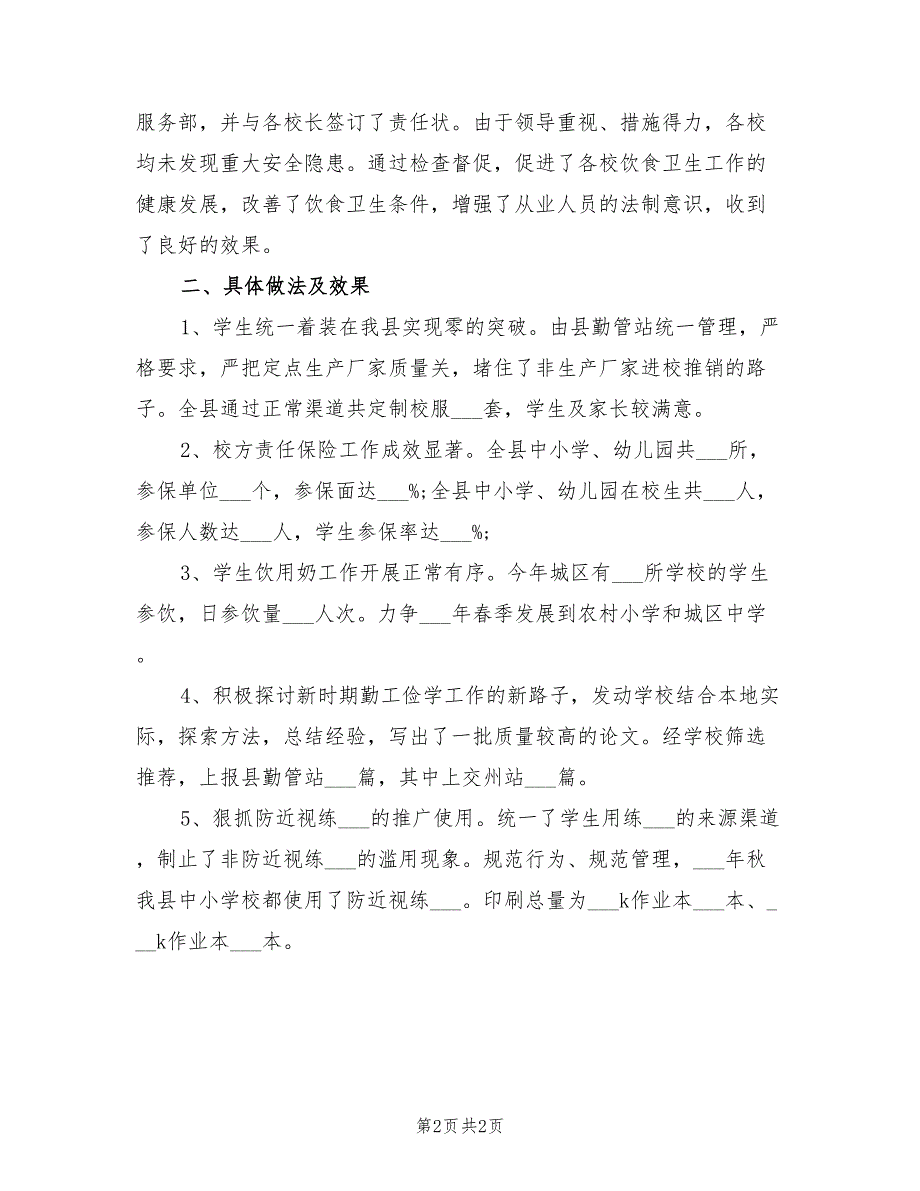 服务部，并与各校长签订了责任状。由于领导重视、措施得力，各校
均未发现重大安全隐患。通过检查督促，促进了各校饮食卫生工作的
健康发展，改善了饮食卫生条件，增强了从业人员的法制意识，收到
了良好的效果。
二、具体做法及效果
1、学生统一着装在我县实现零的突破。由县勤管站统一管理，严
格要求，严把定点生产厂家质量关，堵住了非生产厂家进校推销的路
子。全县通过正常渠道共定制校服___套，学生及家长较满意。
2、校方责任保险工作成效显著。全县中小学、幼儿园共___所，
参保单位___个，参保面达___%;全县中小学、幼儿园在校生共___人，
参保人数达___人，学生参保率达___%;
3、学生饮用奶工作开展正常有序。今年城区有___所学校的学生
参饮，日参饮量___人次。力争___年春季发展到农村小学和城区中学
。
4、积极探讨新时期勤工俭学工作的新路子，发动学校结合本地实
际，探索方法，总结经验，写出了一批质量较高的论文。经学校筛选
推荐，上报县勤管站___篇，其中上交州站___篇。
5、狠抓防近视练___的推广使用。统一了学生用练___的来源渠道
，制止了非防近视练___的滥用现象。规范行为、规范管理，___年秋
我县中小学校都使用了防近视练___。印刷总量为___k作业本___本、_
__k作业本___本。
第2页 共2页